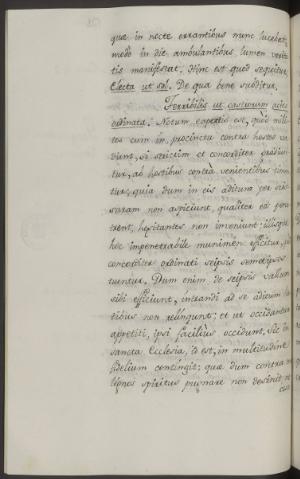 quæ in nocte errantibus nunc lucebat,
modo in die ambulantibus lumen veri-
tatis manifestat. Hinc est quod sequitur
Electa ut sol. De qua bene subditur.
Terribilis ut castrorum acies
ordinata. Notum expertis est, quod mili-
tes cum in procinctu contra hostes va-
dunt, si strictim et concorditer gradiun-
tur, ab hostibus contra venientibus timen-
tur, quia dum in eis aditum per scis-
suram non aspiciunt, qualiter eos pene-
trent, hæsitantes non inveniunt: illisque
hoc impenetrabile munimen efficitur, quod
concorditer ordinati seipsis
tuentur. Dum enim de seipsis vallum
sibi efficiunt, intrandi ad se aditum hos-
tibus non relinquunt; et ut occidantur
appetiti, ipsi facilius occidunt. Sic in
sancta Ecclesia, id est, in multitudine
fidelium contingit; quæ dum contra ma-
lignos spiritus pugnare non desinit